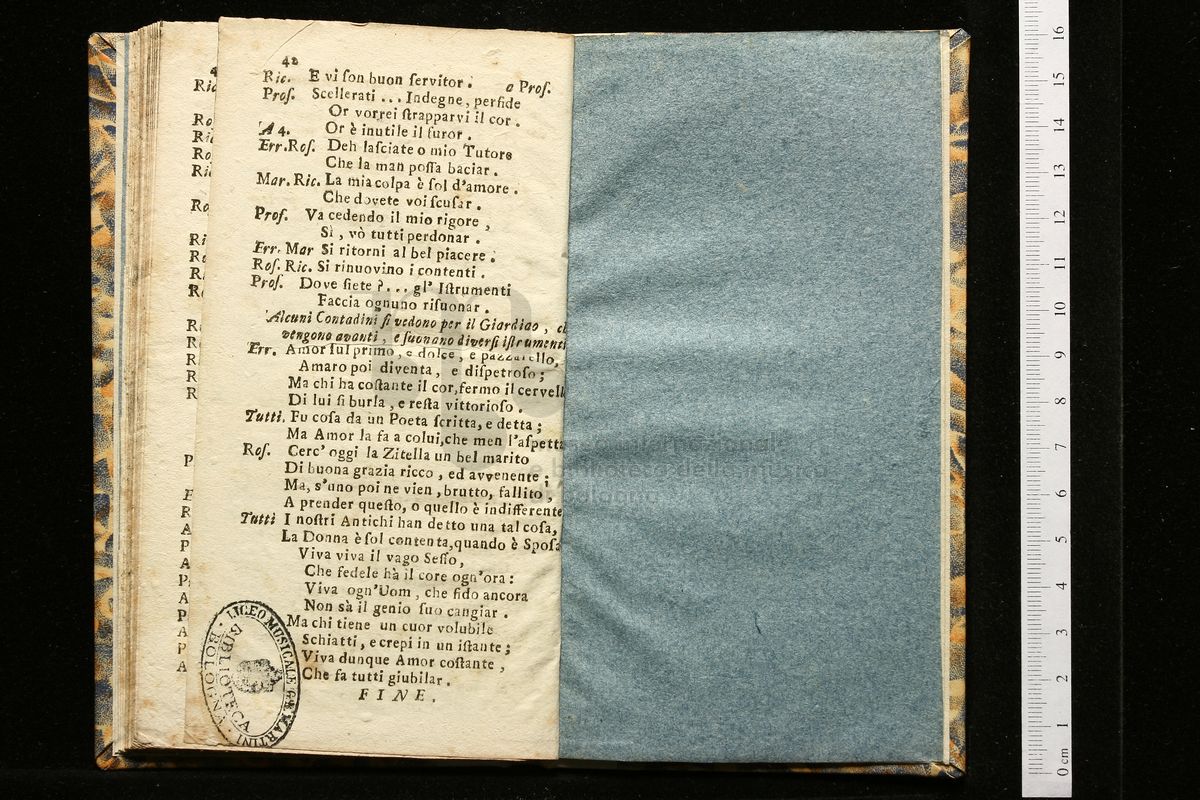 42
Ric. E vi ſon buon ſervitor. a Prof.
Prof. Scellerati ... Indegne, perfide
Or vorrei ſtrapparvi il cor.
A 4. Or è inutile il furor.
Err. Roſ. Deh laſciate o mio Tutore
Che la man poſſa baciar.
Mar. Ric. La mia colpa è ſol d'amore.
Che dovete voi ſcuſar.
Prof. Va cedendo il mio rigore,
Sì, vò tutti perdonar.
Err. Mar Si ritorni al bel piacere.
Roſ. Ric. Si rinuovino i contenti.
Prof. Dove ſiete?... gl' Iſtrumenti
Faccia ognuno riſuonar.
Alcuni Contadini ſi vedono per il Giardino,
vengono avanti, e ſuonano diverſi iſtrumenti
Err. Amor ſul primo, e dolce, e pazzarello,
Amaro poi diventa, e diſpetroſo;
Ma chi ha coſtante il cor, fermo il cervell
Di lui ſi burla, e reſta vittorioſo.
Tutti. Fu coſa da un Poeta ſcritta, e detta;
Ma Amor la fa a colui, che men l'aſpetta
Roſ. Cerc' oggi la Zitella un bel marito
Di buona grazia ricco, ed avvenente;
Ma, s'uno poi ne vien, brutto, fallito,
A prender queſto, o quello è indifferente
Tutti I noſtri Antichi han detto una tal coſa,
La Donna è ſol contenta, quando è Spoſa
Viva viva il vago Seſſo,
Che fedele hà il core ogn'ora:
Viva ogn'Uom, che fido ancora
Non sà il genio ſuo cangiar.
Ma chi tiene un cuor volubile
Schiatti, e crepi in un iſtante;
Viva dunque Amor coſtante,
Che fa tutti giubilar.
FINE.
LICEO MUSICALE G.B. MARTINI
BIBLIOTECA
BOLOGNA
0 cm 1 2 3 4 5 6 7 8 9 10 11 12 13 14 15 16